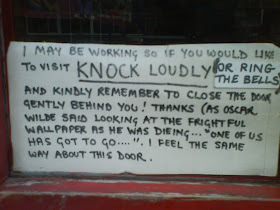 I MAY BE WORKING SO IF YOU WOULD LIKE
TO VISIT KNOCK LOUDLY OR RING
THE BELLS
AND KINDLY REMEMBER TO CLOSE THE DOOR
GENTLY BEHIND YOU! THANKS (AS OSCAR
WILDE SAID LOOKING AT THE FRIGHTFUL
WALLPAPER AS HE WAS DIEING... "ONE OF US
HAS GOT TO GO....". I FEEL THE SAME
WAY ABOUT THIS DOOR.